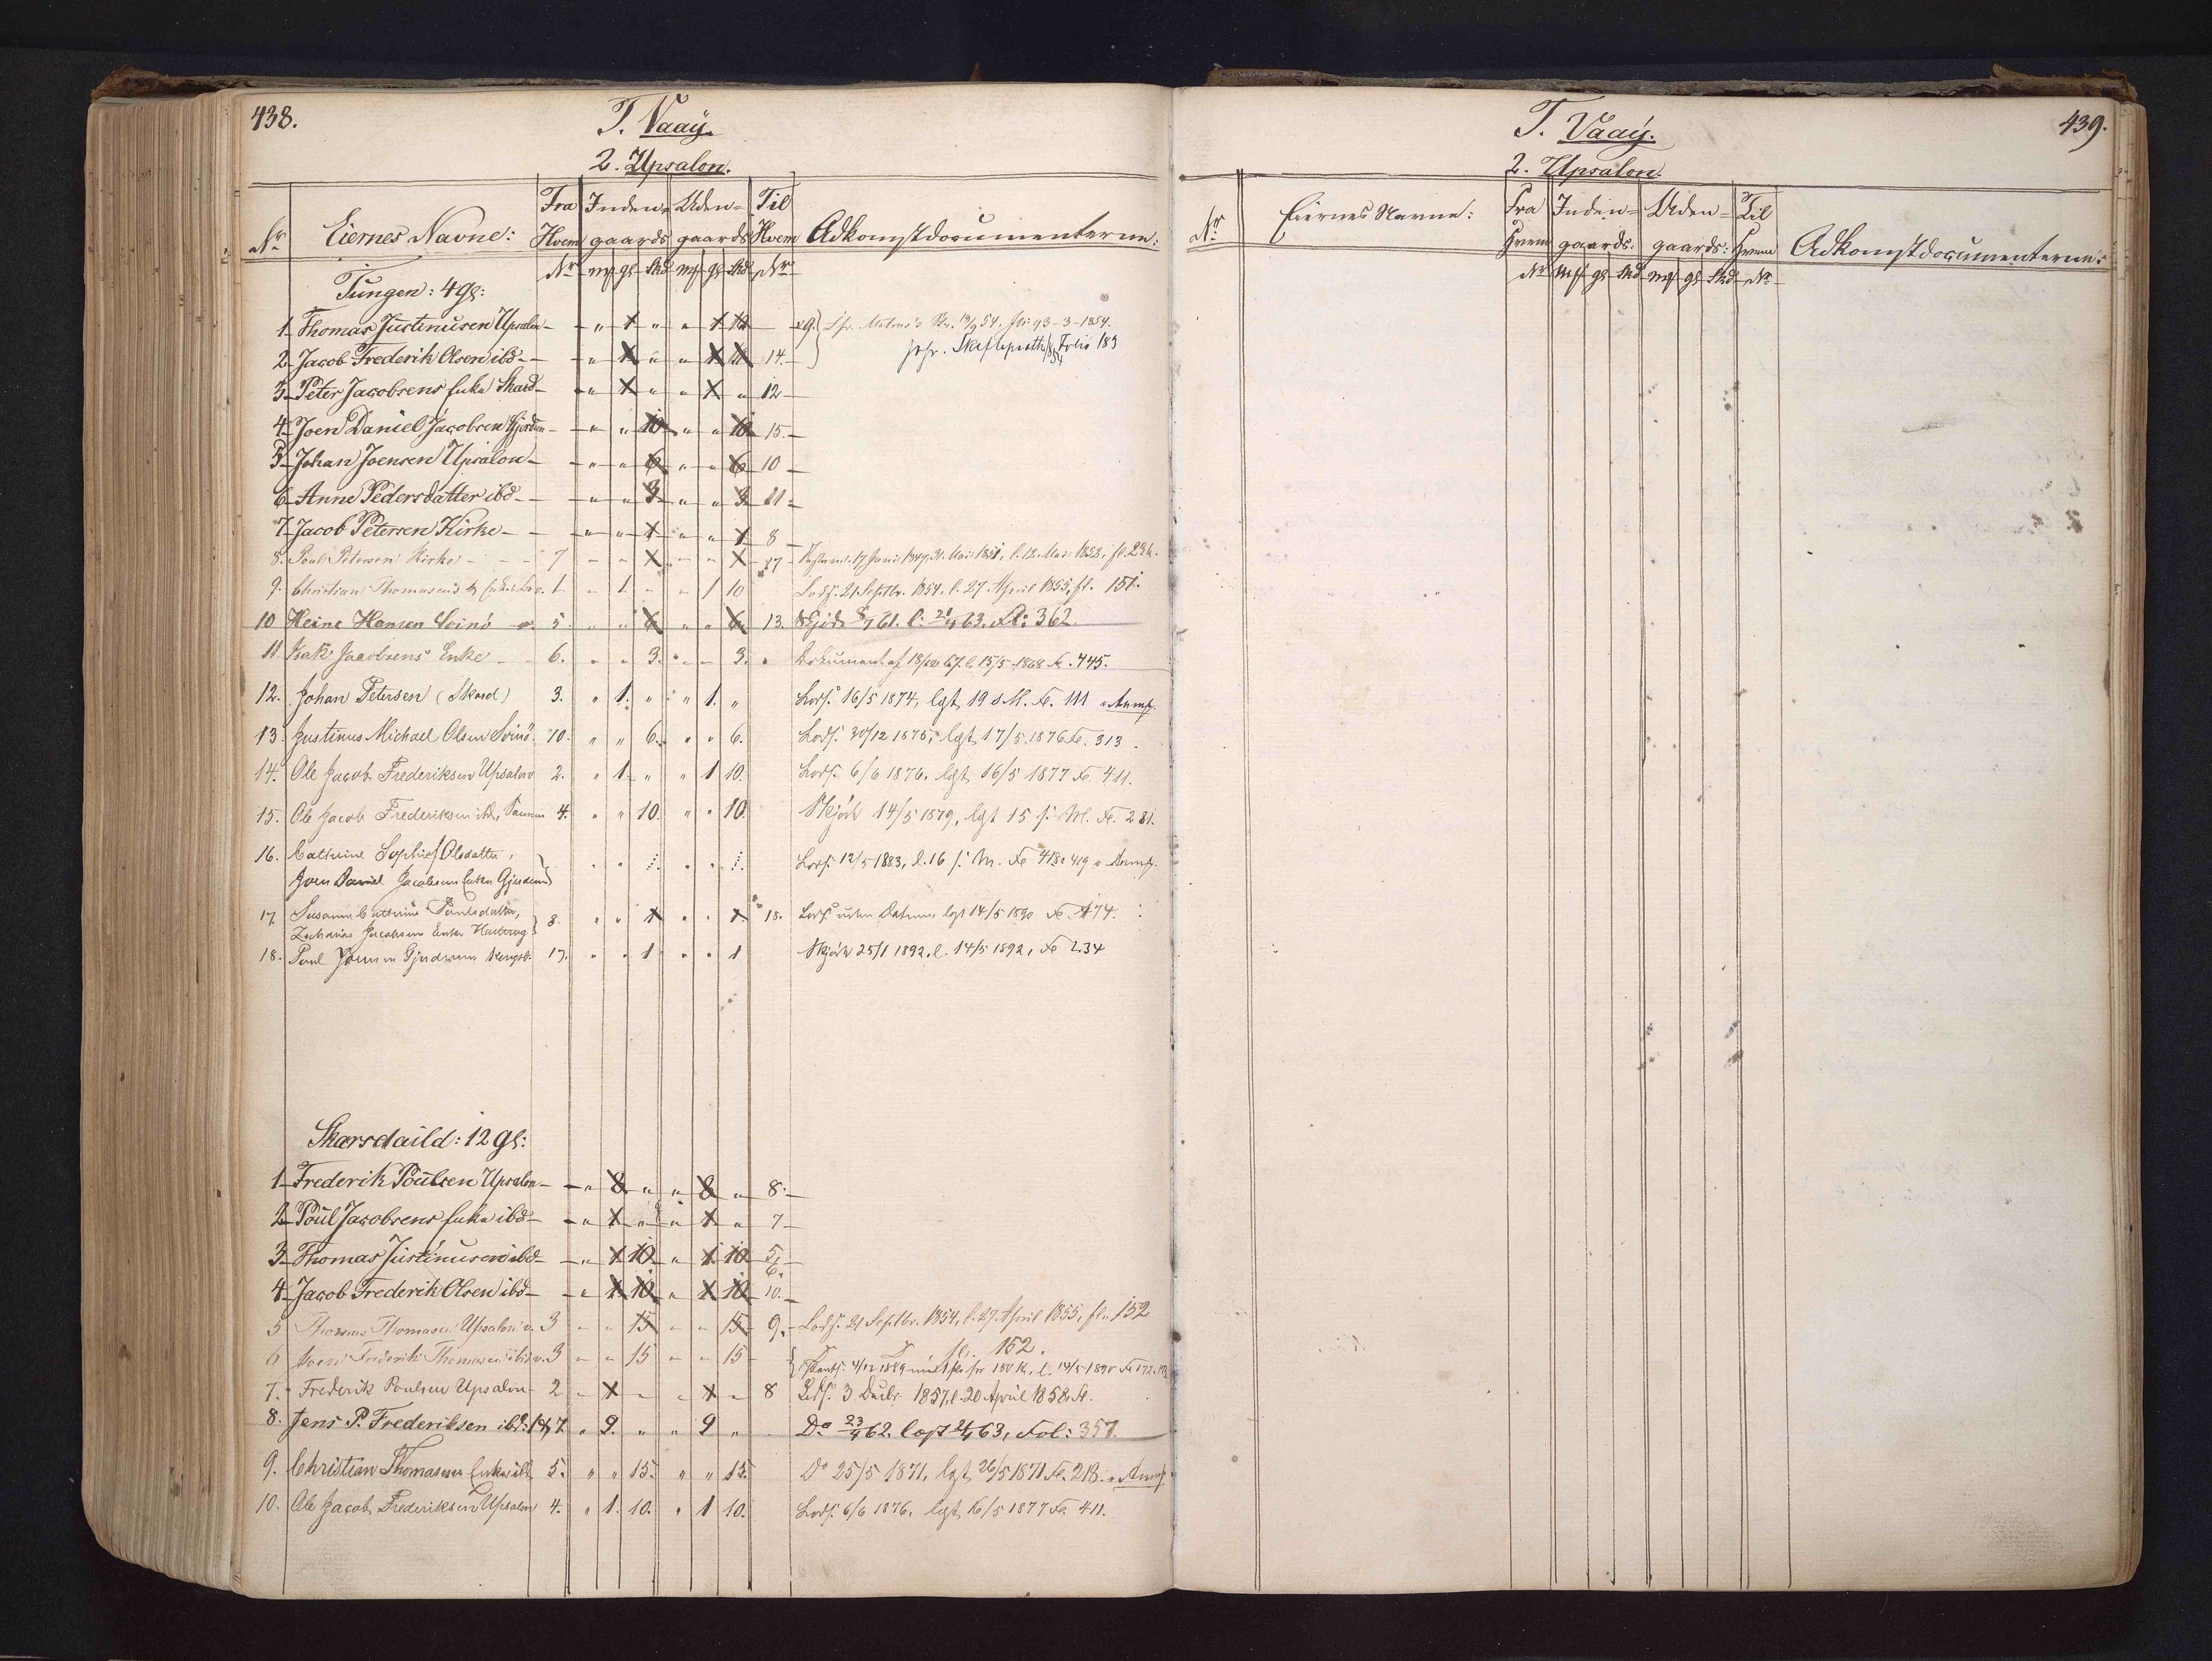 438.
T. Vaaÿ.
2. Upsalon.
Nr
Eiernes Navne:
Fra Hvem
Inden- gaards
Uden- gaards
Til Hvem
Adkomstdocumenterne:
Nr mk gl Skd mk gl Skd Nr
Tungen: 4 gl:
1 Thomas Justinusen Upsalon - - " 1 " " 1 10 - 9. Skr. 13/9 54. 93-3-1854.
2 Jacob Frederik Olsen ibd - - - " 1 " " 1 10 14. - Folio 189
3 Peter Jacobsens Enke Skard - - " 1 " " 1 " 12 -
4 Joen Daniel Jacobsen Gjerdum - - " " 10 " " 10 15. -
5 Johan Joensen Upsalon - - " " 6 " " 6 10 -
6 Anne Pedersdatter ibd - - - " " 3 " " 3 11 -
7 Jacob Petersen Kirke - - - " " 1 " " 1 8 -
8. Poul Petersen Kirke - - - 7 - - 1 - - 1 17 - 17 Juni 1847, 31. Mai 1851, l. 12. Mai 1852, fl. 236.
9. Christian Thomasens Enke 1 - 1 - " 1 10 Lodf. 21 Septbr. 1854, l. 27. April 1855, fl. 151.
10 Heine Hansen Svinö 5. " " 6 " " 6. 13. Skjöde 61. l: 63. Fl: 362.
11. Isak Jacobsens Enke - - 6. " - 3. " - 3. " Dokument af 18/ 67. l. 15/5 1868 Fl. 445.
12. Johan Petersen (Skard) 3. " 1. " " 1. " Lodf. 16/5 1874, lgt 19 s. M. Fl. 111 Anmf.
13. Justinus Michael Olsen Svinö 10. " " 6. " " 6. Lodf. 30/12 1875, lgt 17/5 1876 Fl. 313.
14. Ole Jacob Frederiksen Upsalon 2. " 1 " " 1 10. Lodf. 6/6 1876. lgt 16/5 1877 Fl. 411.
15. Ole Jacob Frederiksen ibd, Samme 4. " " 10. " " 10. Skjöde 14/5 1879, lgt 15 s. M. Fl. 281.
16. Cathrine Sophie Olsdatter,
Joen Daniel Jacobsens Enke Gjerdum Lodf. 12/5 1883, l. 16 s. M. Fl. 418 & 419 Anmf.
17. Susanne Cathrine Poulsdatter,
Zacharias Jacobsens Enke 8. " " 1 " " 1. 18. Lodf. uden Datum, lgt 14/5 1890 Fl. 174.
18. Poul Joensen Gjerdum 17. " " 1 " " 1 Skjöde 25/1 1892, l. 14/5 1892, Fl. 234
Skarsdaild: 12 gl:
1 Frederik Poülsen Upsalon - - " 8 " " 8 " 8. -
2 Poül Jacobsens Enke ibd - - " 1 " " 1 " 7 -
3 Thomas Justinusen ibd - - " 1 10 " 1 10 5, 6. -
4 Jacob Frederik Olsen ibd - - " 1 10 " 1 10 10. -
5 Thomas Thomasen Upsalon v. 3 - - 15 - - 15 - 9. - Lodf. 21 Septbr. 1854, l. 27. April 1855, fl. 152
6 Joen Frederik Thomasen ibd v. 3 - - 15 - - 15 - fl. 152.
Pantf. 4/12 1889 for 150 K, l. 14/5 1890 Fl. 172
7. Frederik Poulsen Upsalon 2 - 1 - - 1 - 8 Lodf. 3 Decbr. 1857, l. 20 April 1858, Fl.
8. Jens P. Frederiksen ibd: 1 & 7. " 9. " " 9 " Do 23/ 62. lgst 63, Fol: 357.
9. Christian Thomasens Enke ibd 5. " " 15. " " 15. Do 25/5 1871, lgt 26/5 1871 Fl. 218. Anmf.
10. Ole Jacob Frederiksen Upsalon 4. " 1. 10. " 1 10. Lodf. 6/6 1876, lgt 16/5 1877 Fl. 411.
439.
T. Vaaÿ.
2. Upsalon.
Nr
Eiernes Navne:
Fra Hvem
Inden- gaards:
Uden- gaards:
Til Hvem
Adkomstdocumenterne:
Nr mk gl Skd mk gl Skd Nr